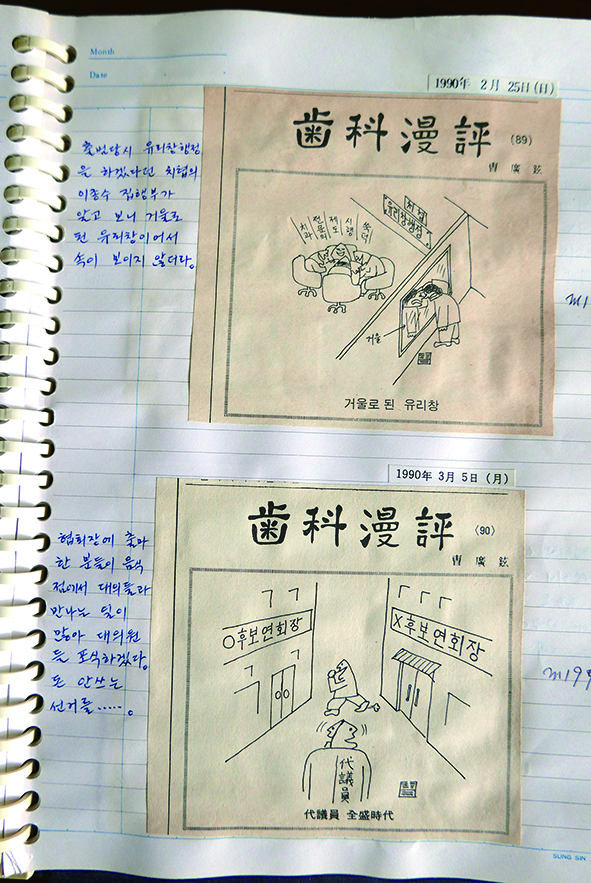 Month
Date
1990年 2月 25日(日)
齒科漫評 (89)
출범당시 유리창행정
을 하겠다던 치협의
이종수 집행부가
앉고 보니 거울로
된 유리창이어서
속이 보이지 않더라.
치협
유리창행정
치과
전문의
제도
시행
쑥덕
거울
거울로 된 유리창
1990年 3月 5日 (月)
齒科漫評 (90)
협회장에 출마
한 분들이 음식
점에서 대의들과
만나는 일이
많아 대의원
들 포식하겠다.
돈 안쓰는
선거를......
O후보연회장
X후보연회장
代議員
代議員 全盛時代
SUNG SIN